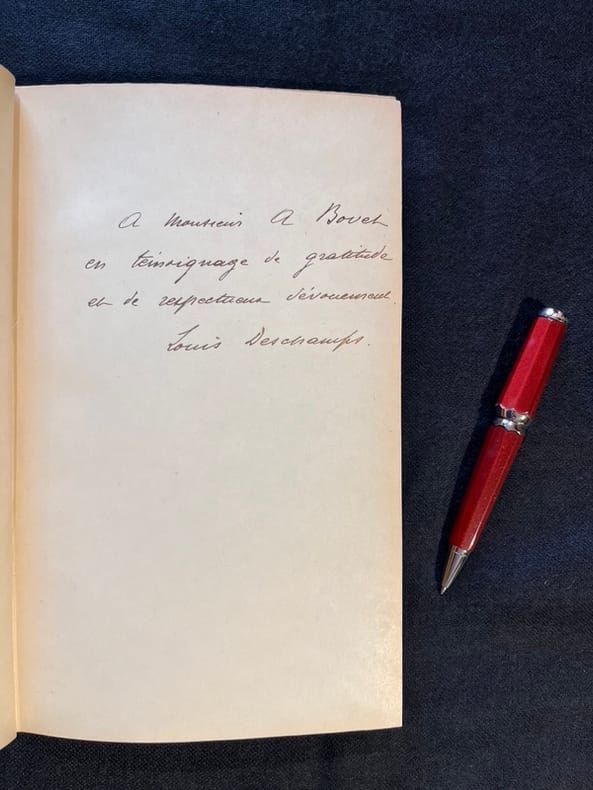 A Monsieur A Bovet
en témoignage de gratitude
et de respectueux dévouement.
Louis Deschamps.